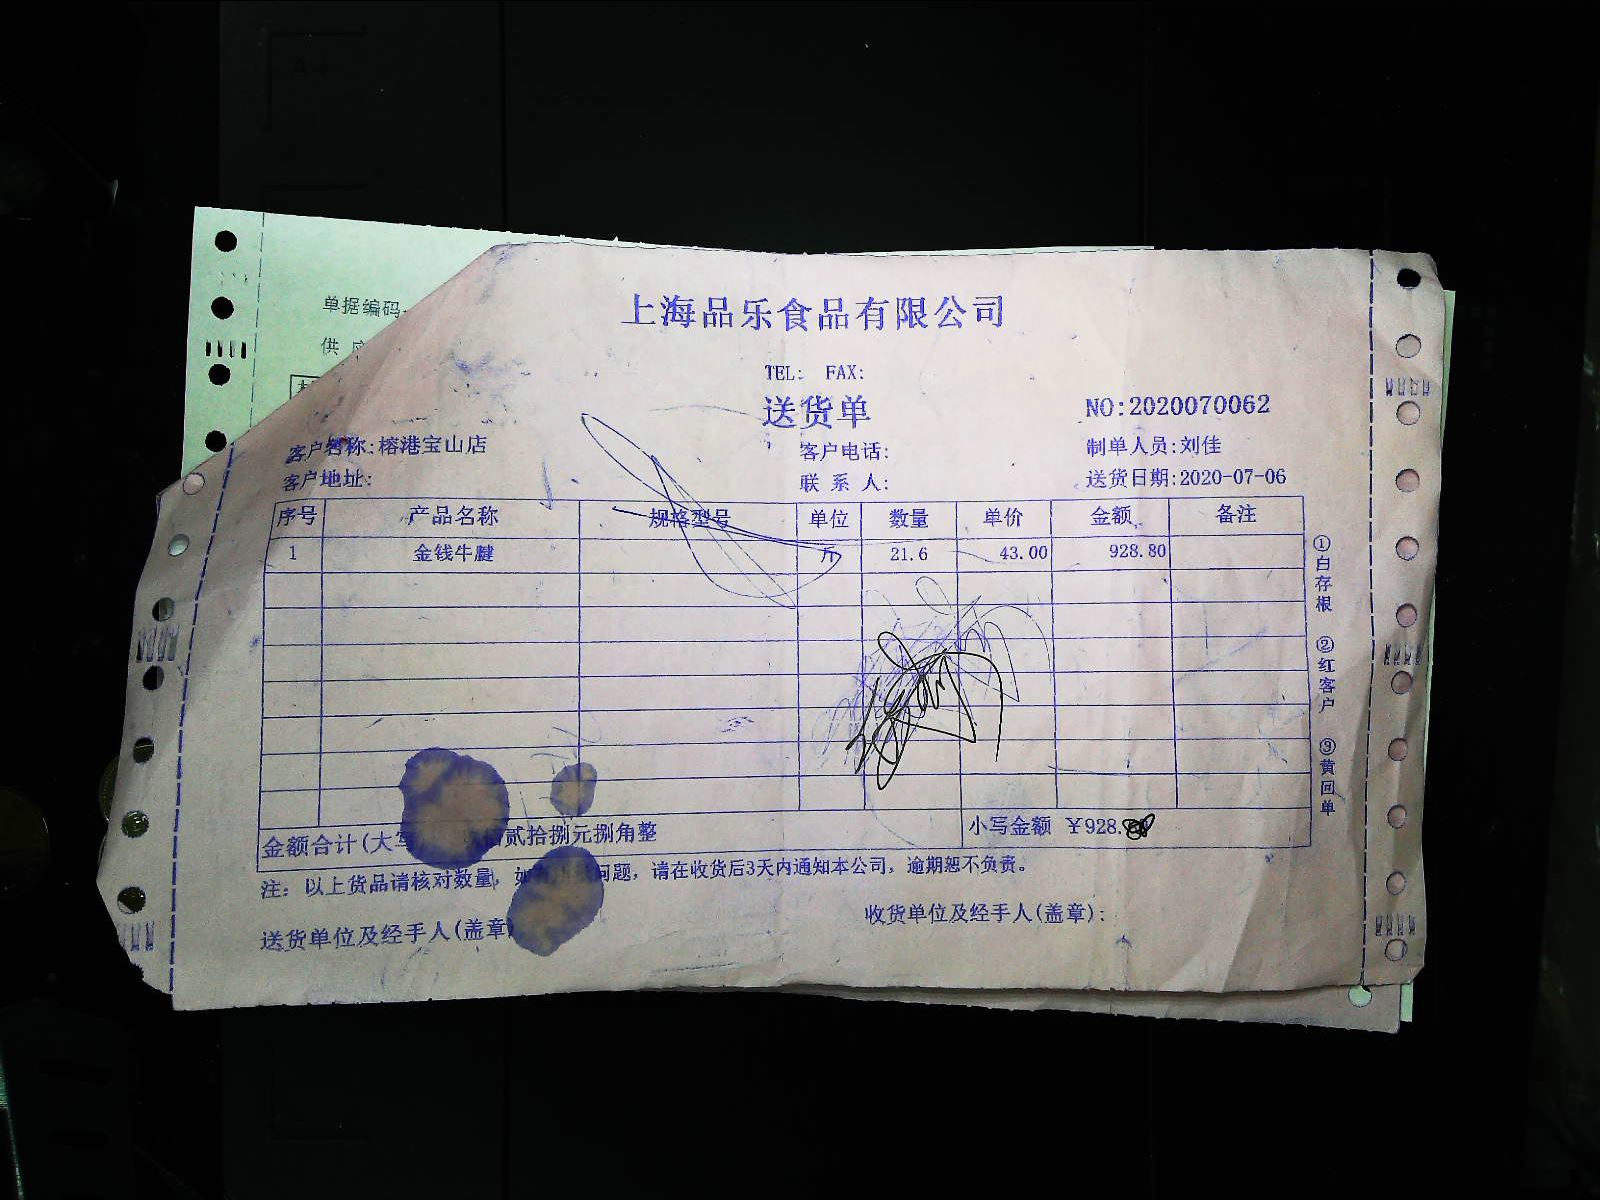 单据编码
供
上海品乐食品有限公司
TEL: FAX:
送货单
NO:2020070062
客户名称:榕港宝山店 客户电话: 制单人员:刘佳
客户地址: 联 系 人: 送货日期:2020-07-06
序号 产品名称 规格型号 单位 数量 单价 金额 备注
1 金钱牛腱 斤 21.6 43.00 928.80
①白存根 ②红客户 ③黄回单
金额合计(大写 佰贰拾捌元捌角整 小写金额 ¥928.
注: 以上货品请核对数量, 如 问题, 请在收货后3天内通知本公司, 逾期恕不负责。
送货单位及经手人(盖章) 收货单位及经手人(盖章):